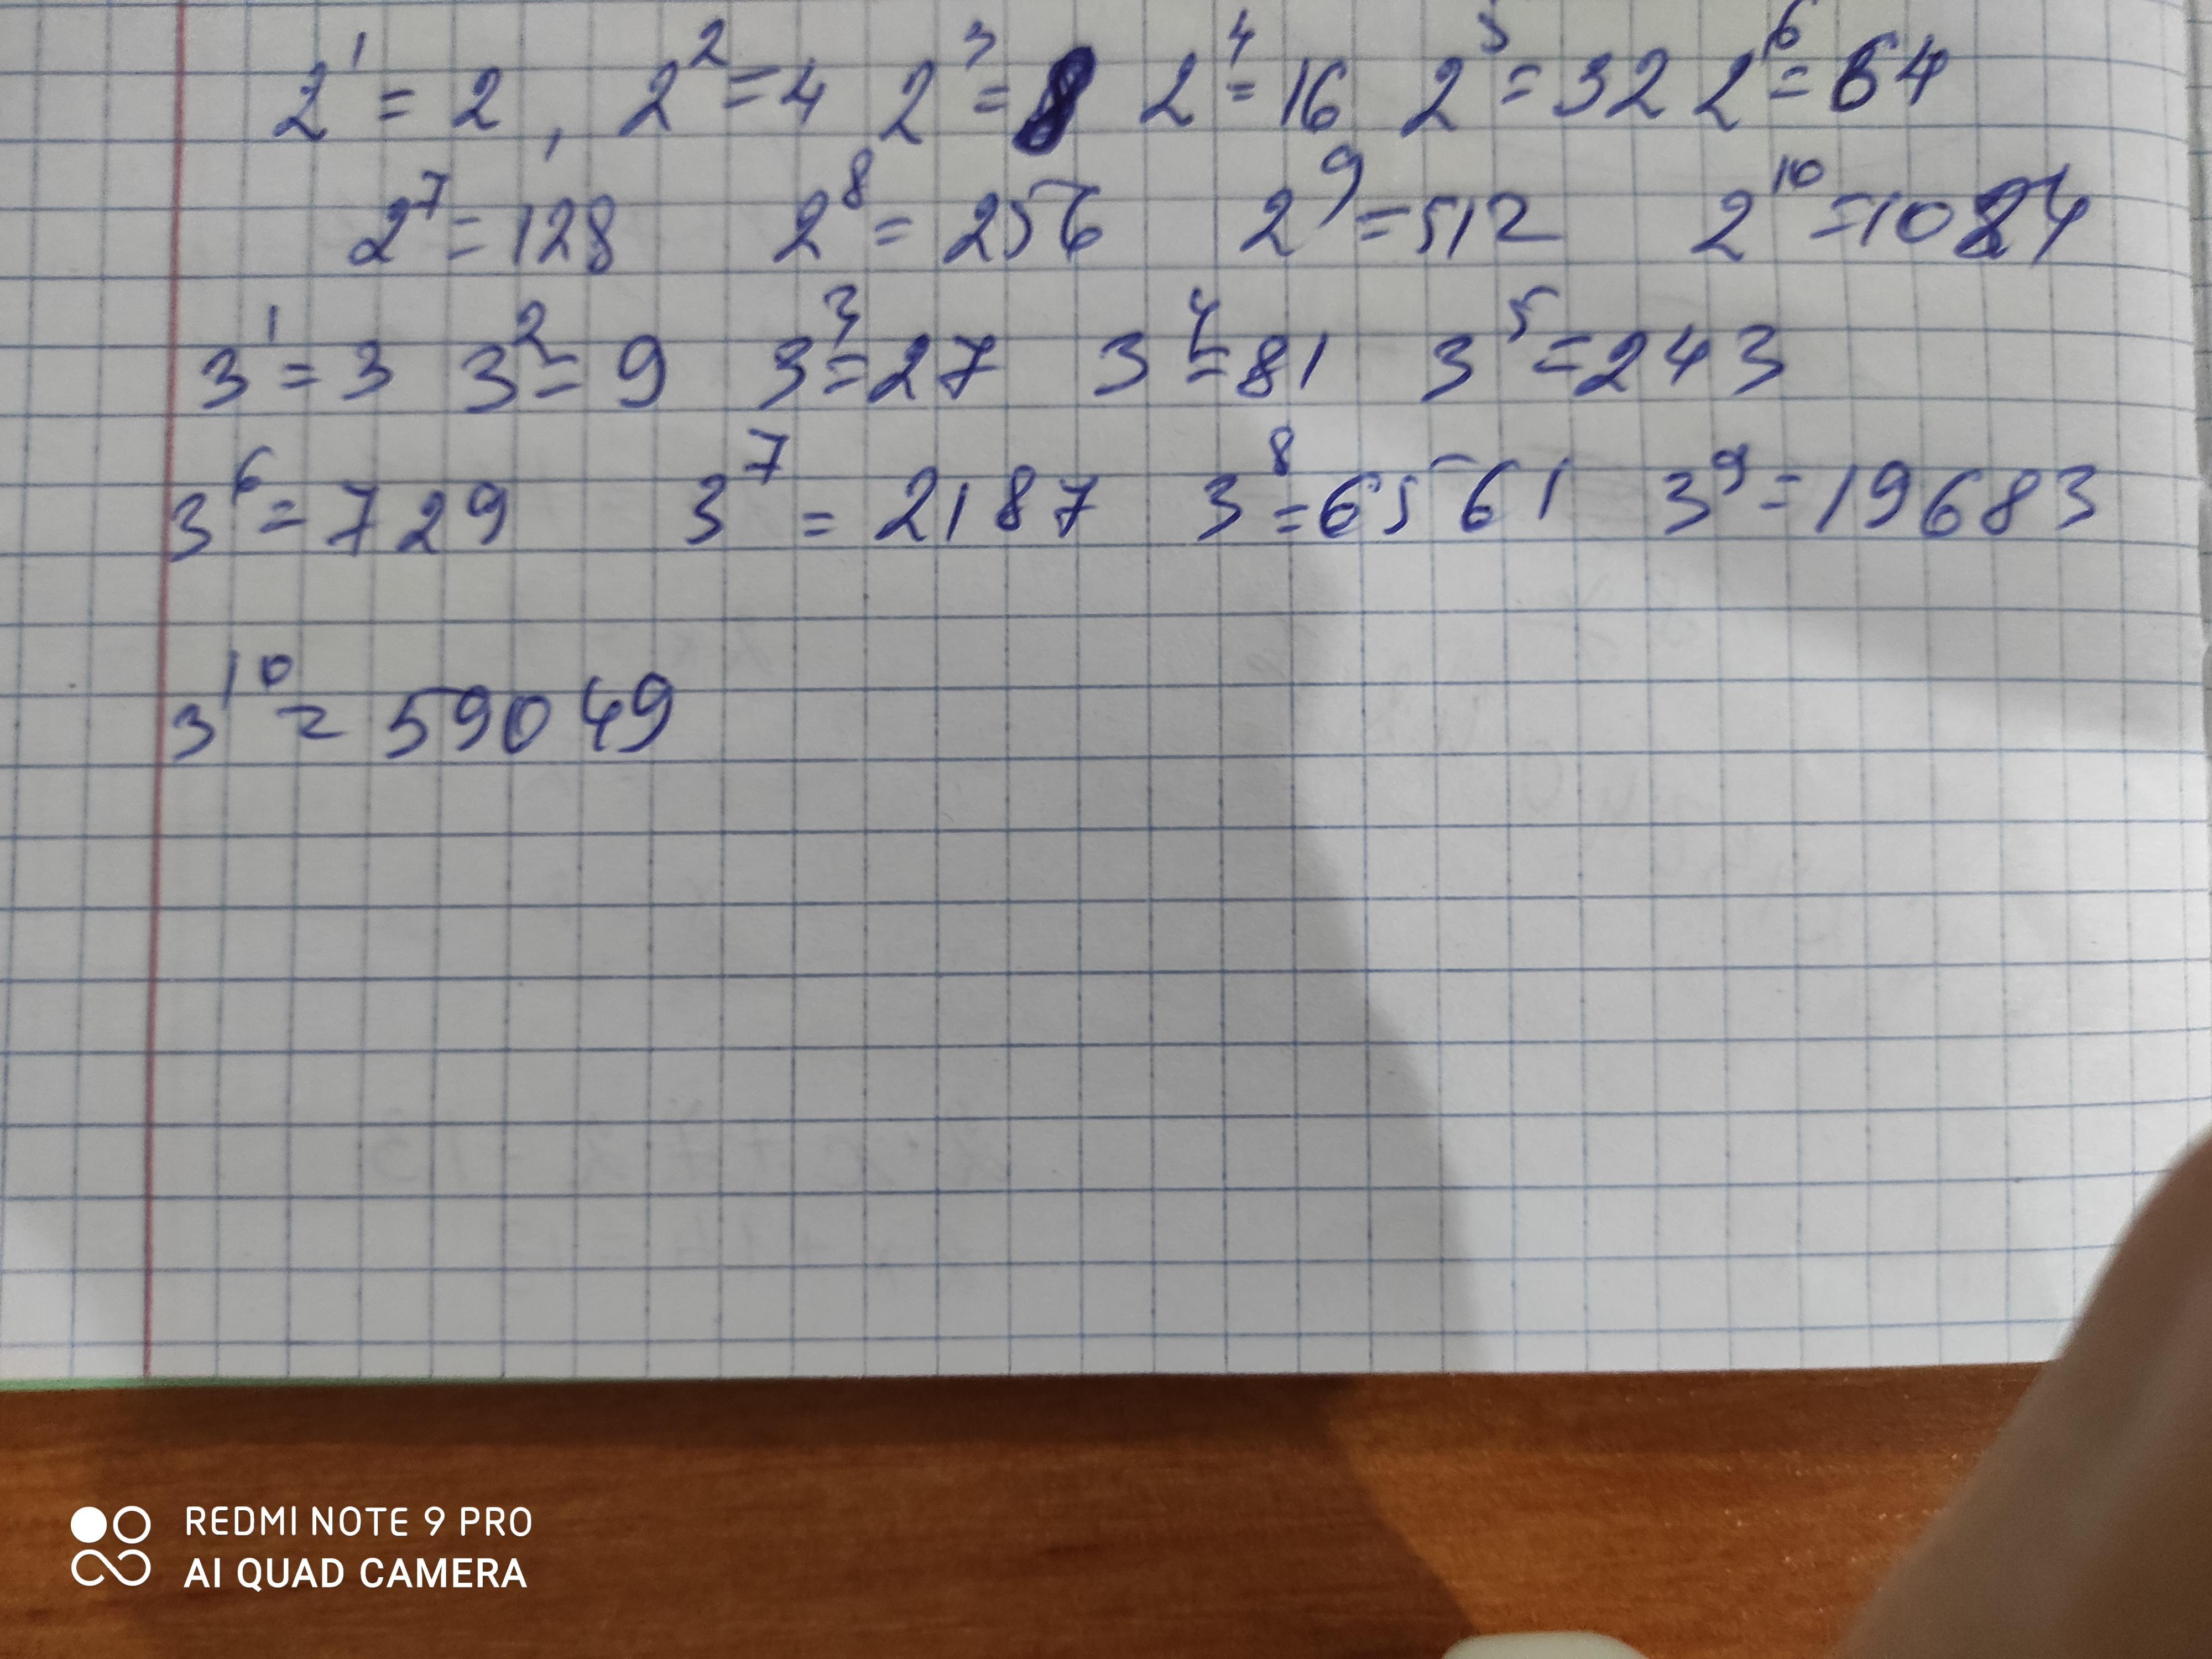 2¹ = 2, 2² = 4 2³ = 8 2⁴ = 16 2⁵ = 32 2⁶ = 64
2⁷ = 128 2⁸ = 256 2⁹ = 512 2¹⁰ = 1024
3¹ = 3 3² = 9 3³ = 27 3⁴ = 81 3⁵ = 243
3⁶ = 729 3⁷ = 2187 3⁸ = 6561 3⁹ = 19683
3¹⁰ = 59049
REDMI NOTE 9 PRO
AI QUAD CAMERA